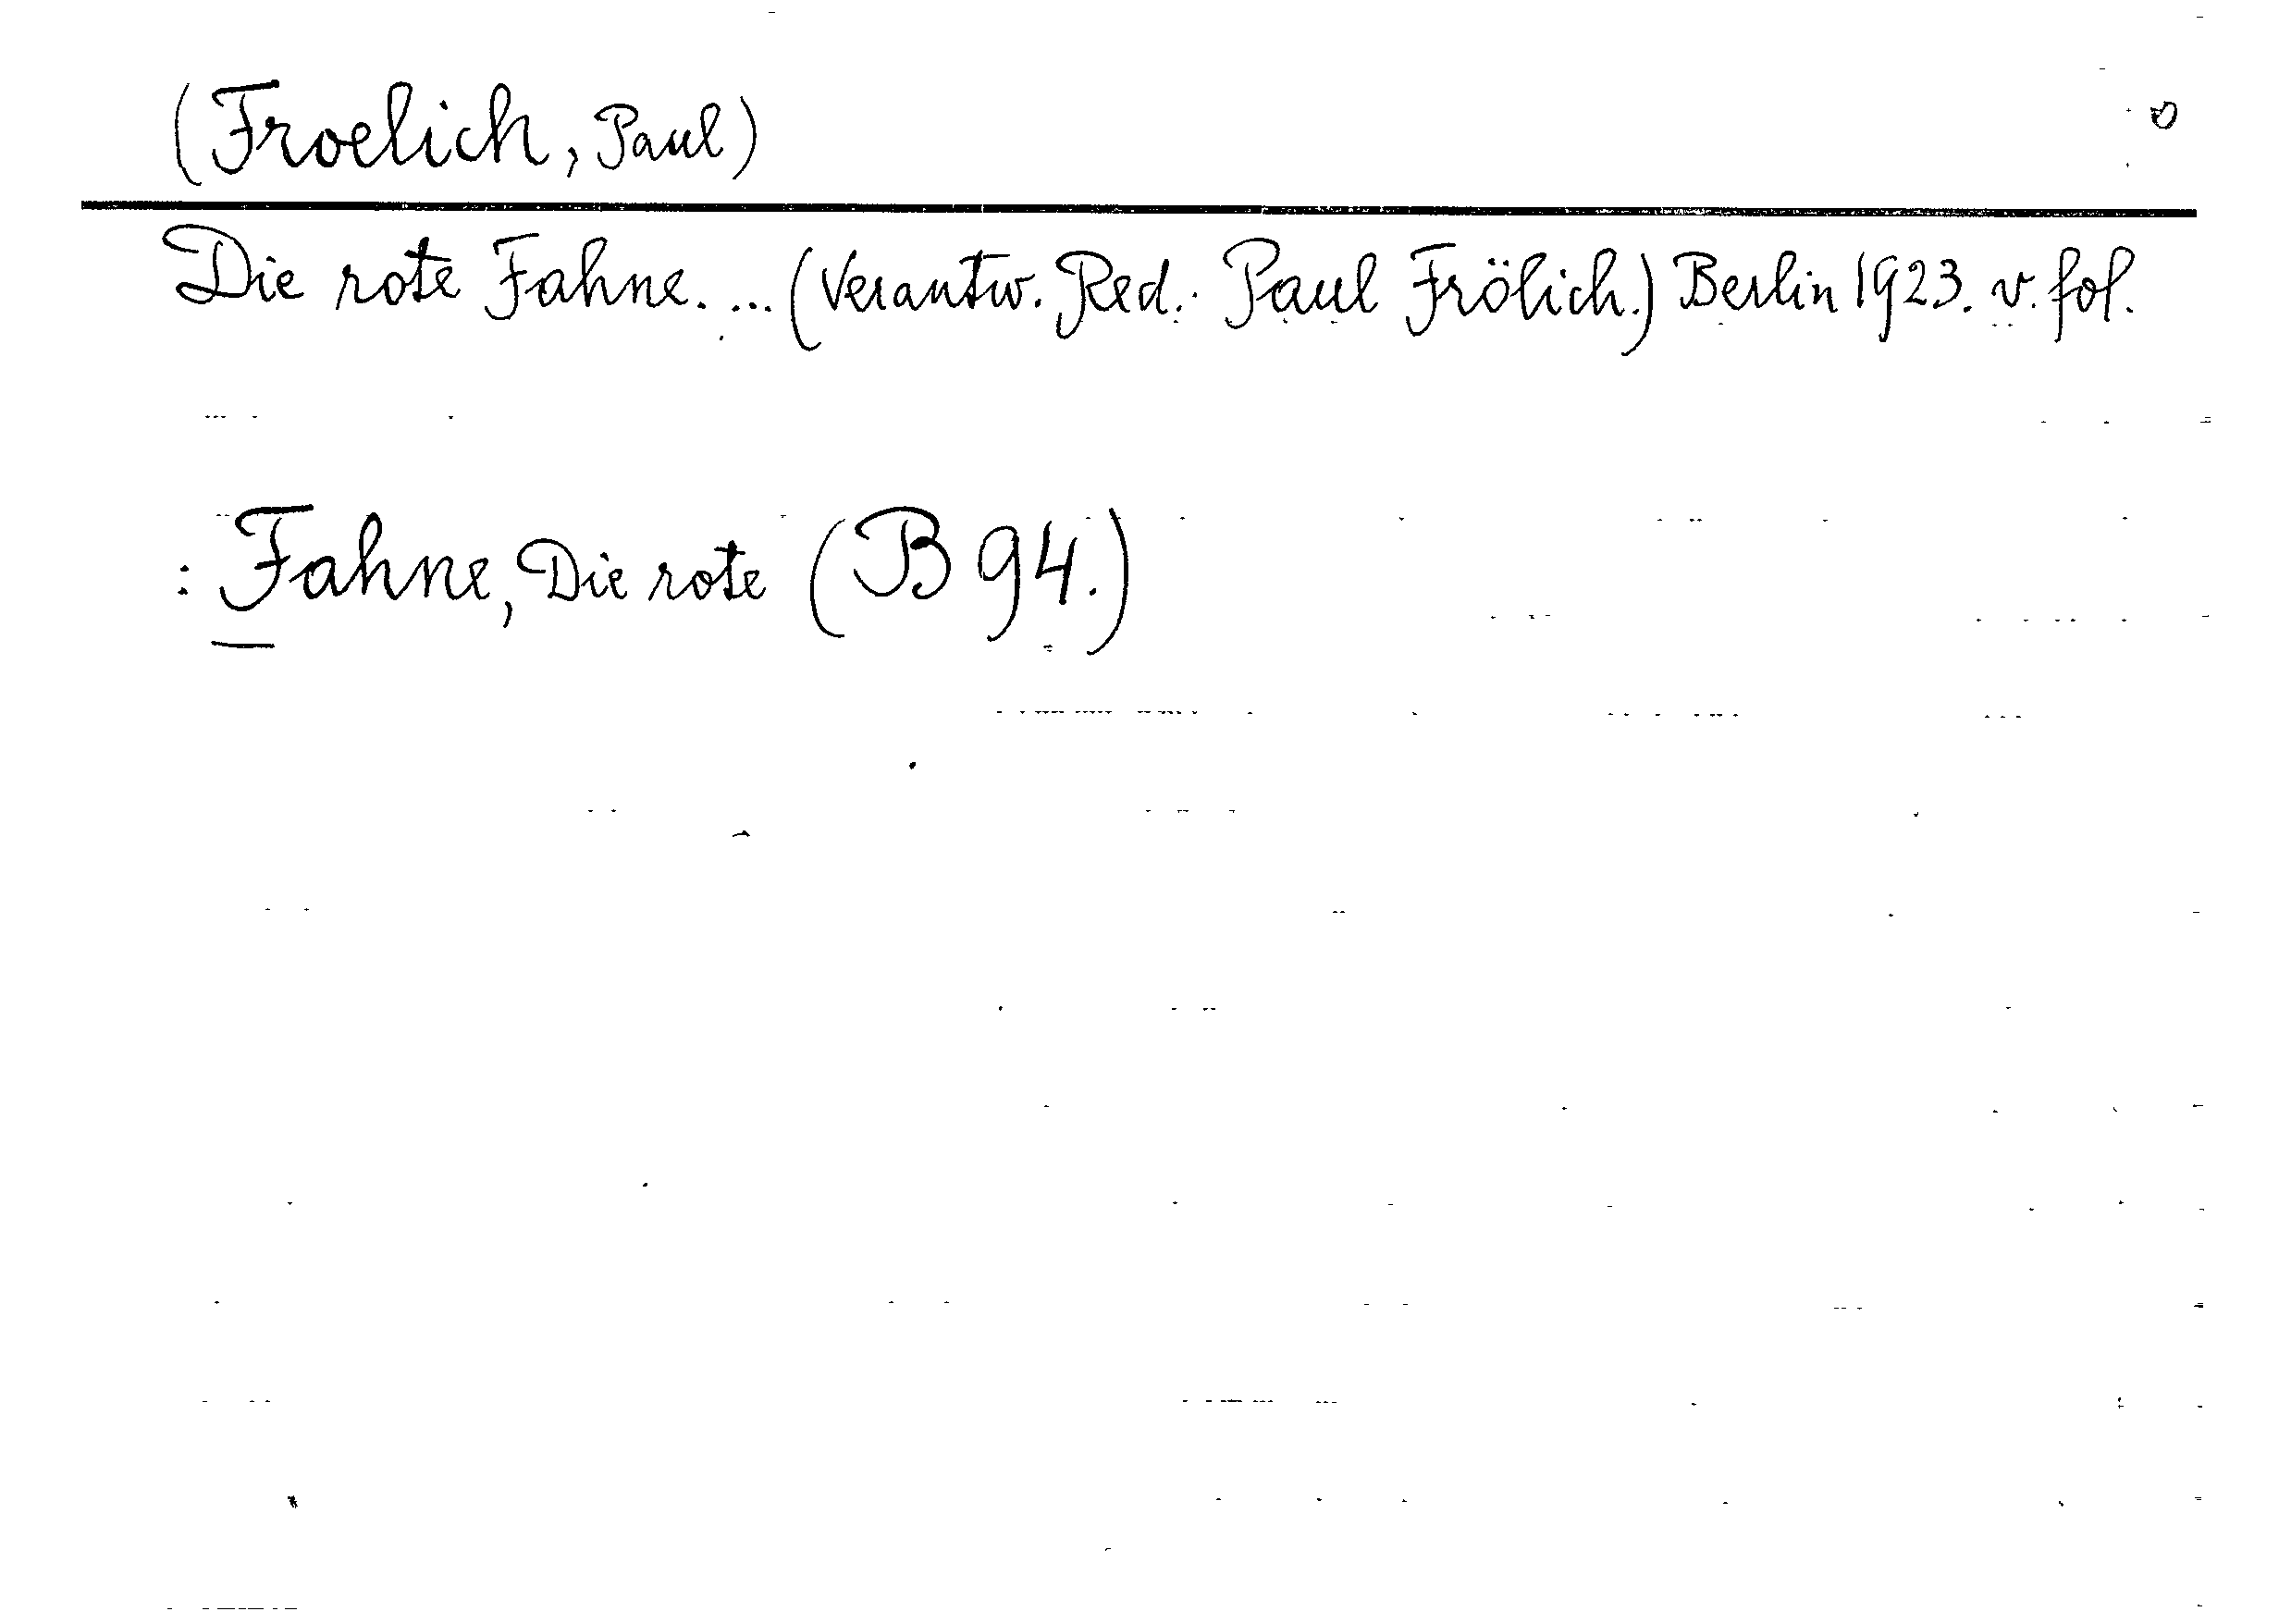 (Froelich, Paul)
Die rote Fahne. ... (Verantw. Red.: Paul Frölich.) Berlin 1923. v. fol.
: Fahne, Die rote (B 94.)